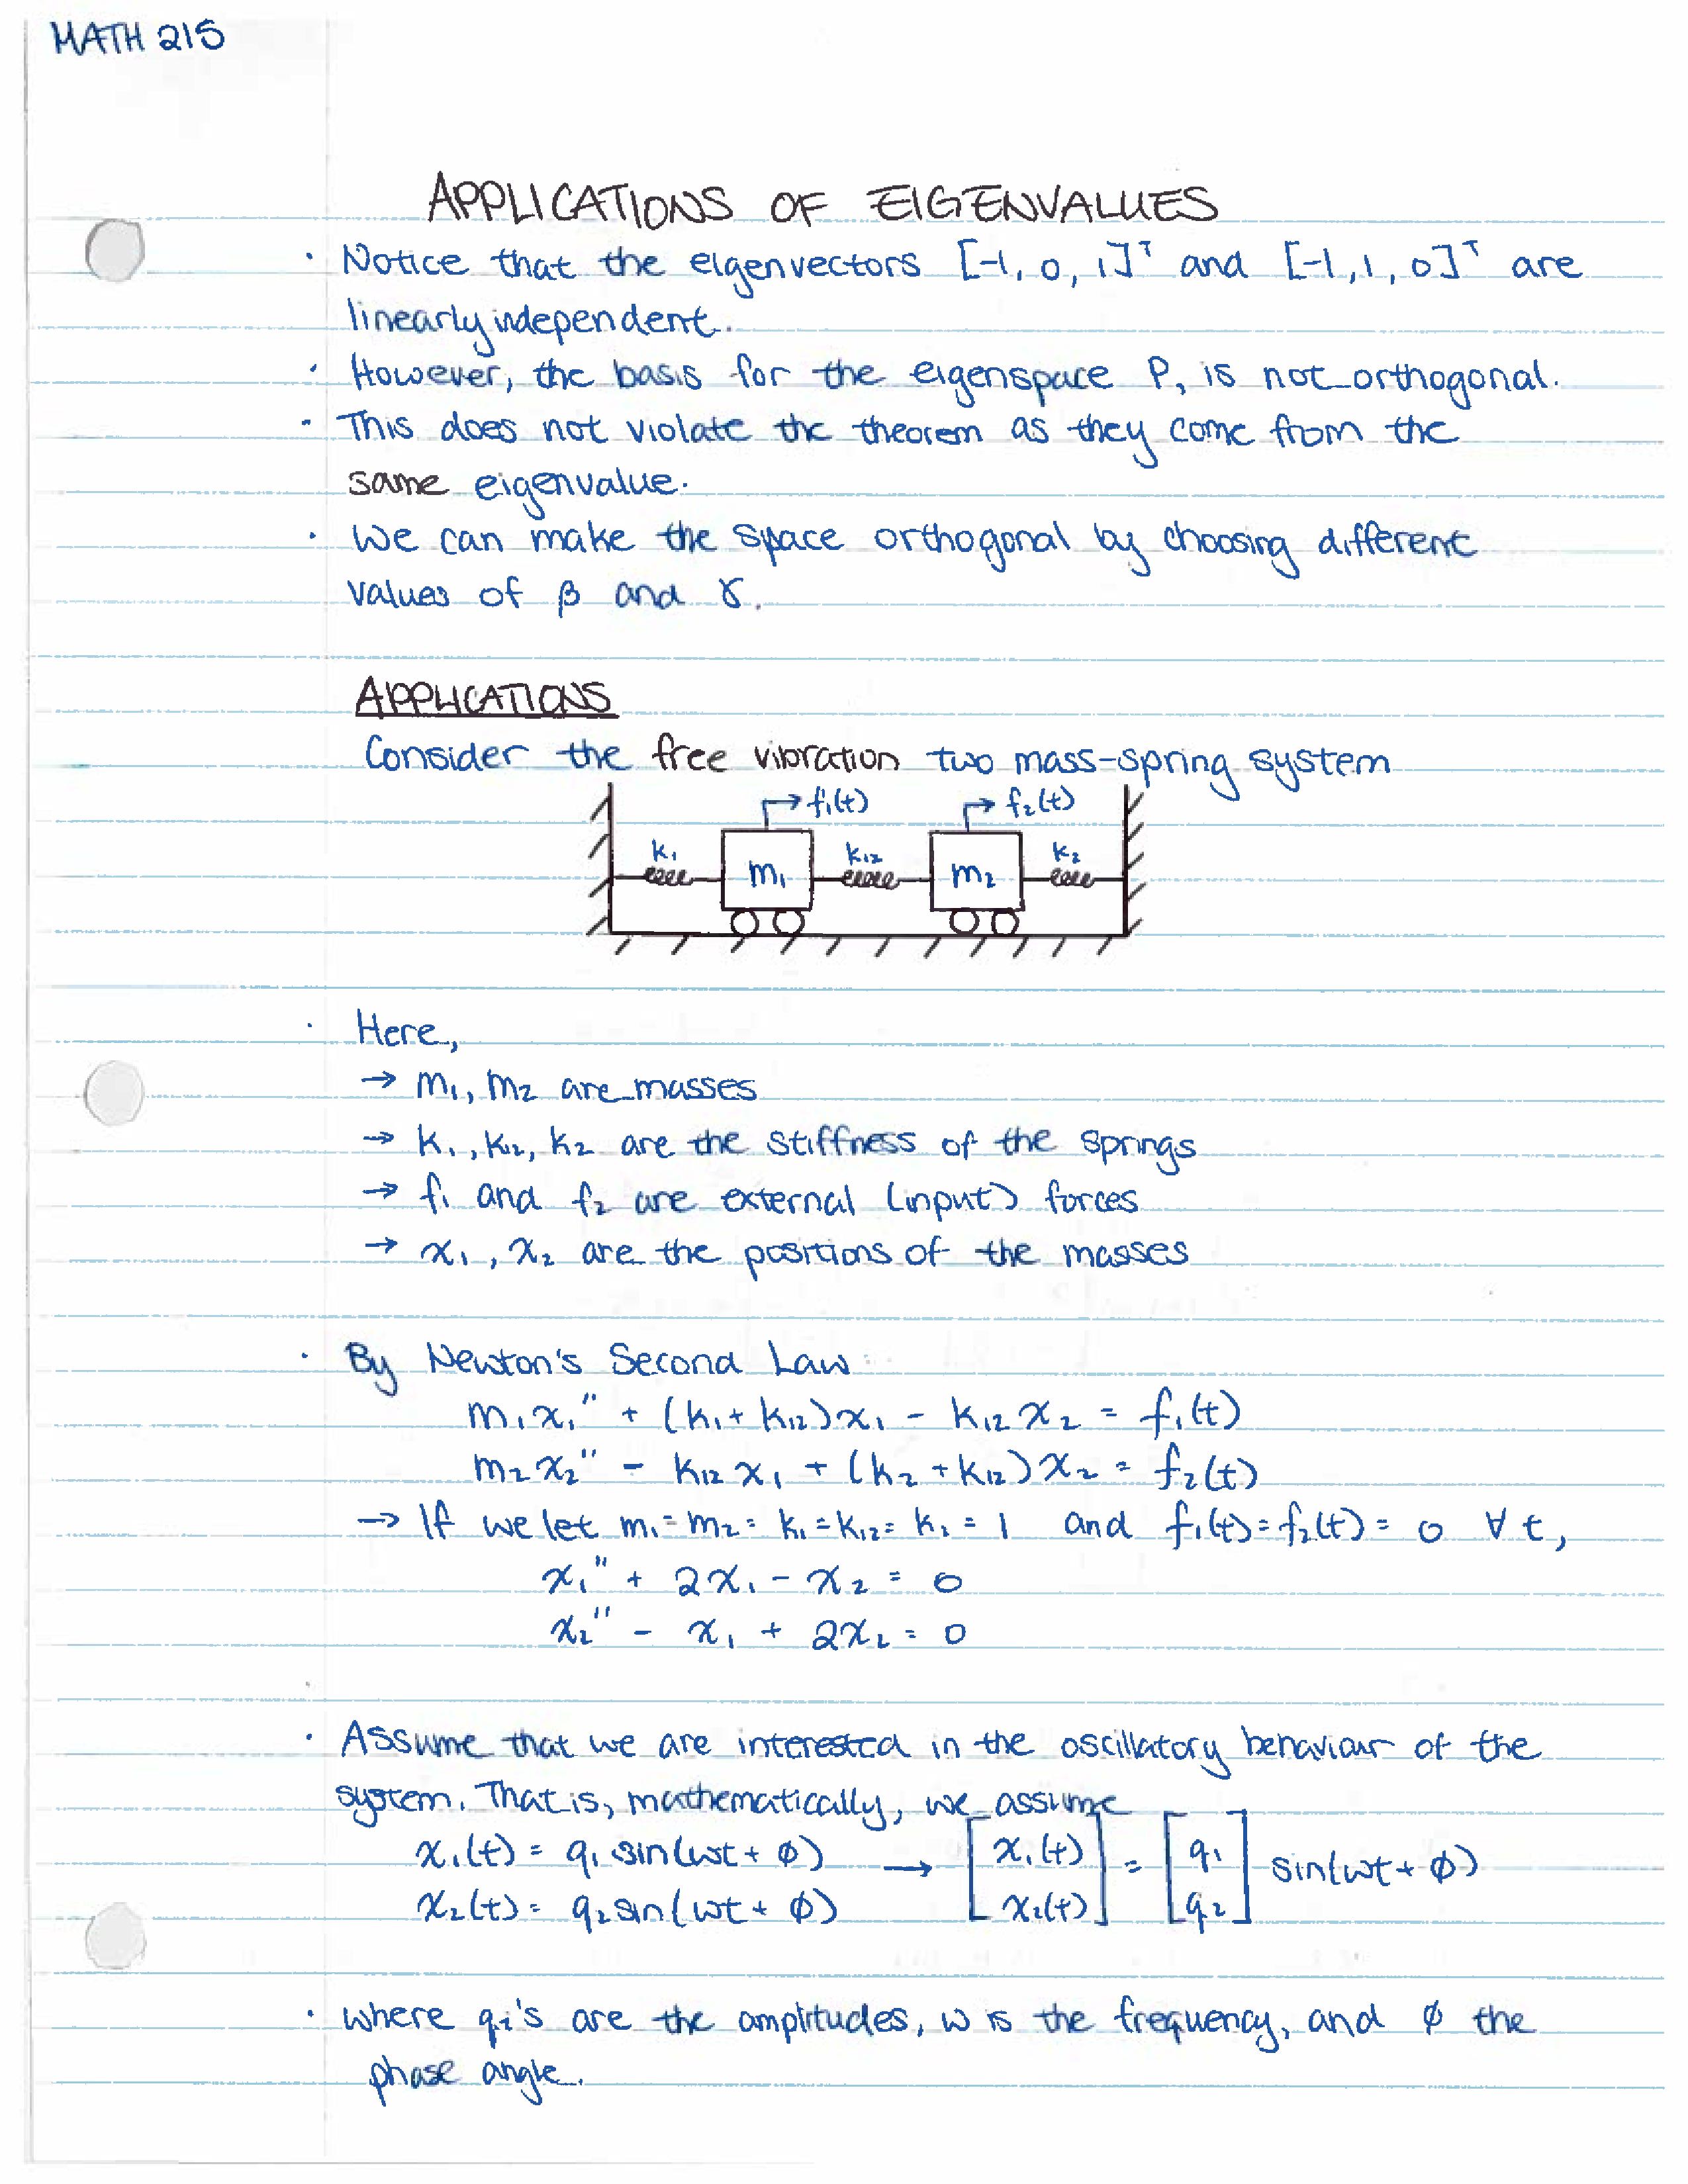 MATH 215
APPLICATIONS OF EIGENVALUES
· Notice that the eigenvectors [-1, 0, 1]ᵀ and [-1, 1, 0]ᵀ are
linearly independent.
· However, the basis for the eigenspace P₁ is not orthogonal.
· This does not violate the theorem as they come from the
same eigenvalue.
· We can make the space orthogonal by choosing different
values of β and γ.
APPLICATIONS
Consider the free vibration two mass-spring system
f₁(t) f₂(t)
k₁ m₁ k₁₂ m₂ k₂
· Here,
→ m₁, m₂ are masses
→ k₁, k₁₂, k₂ are the stiffness of the springs
→ f₁ and f₂ are external (input) forces
→ x₁, x₂ are the positions of the masses
· By Newton's Second Law:
m₁x₁'' + (k₁ + k₁₂)x₁ - k₁₂x₂ = f₁(t)
m₂x₂'' - k₁₂x₁ + (k₂ + k₁₂)x₂ = f₂(t)
→ If we let m₁ = m₂ = k₁ = k₁₂ = k₂ = 1 and f₁(t) = f₂(t) = 0 ∀ t,
x₁'' + 2x₁ - x₂ = 0
x₂'' - x₁ + 2x₂ = 0
· Assume that we are interested in the oscillatory behaviour of the
system. That is, mathematically, we assume
x₁(t) = q₁ sin(ωt + φ) → [x₁(t)] = [q₁] sin(ωt + φ)
x₂(t) = q₂ sin(ωt + φ) [x₂(t)] [q₂]
· where qᵢ's are the amplitudes, ω is the frequency, and φ the
phase angle.